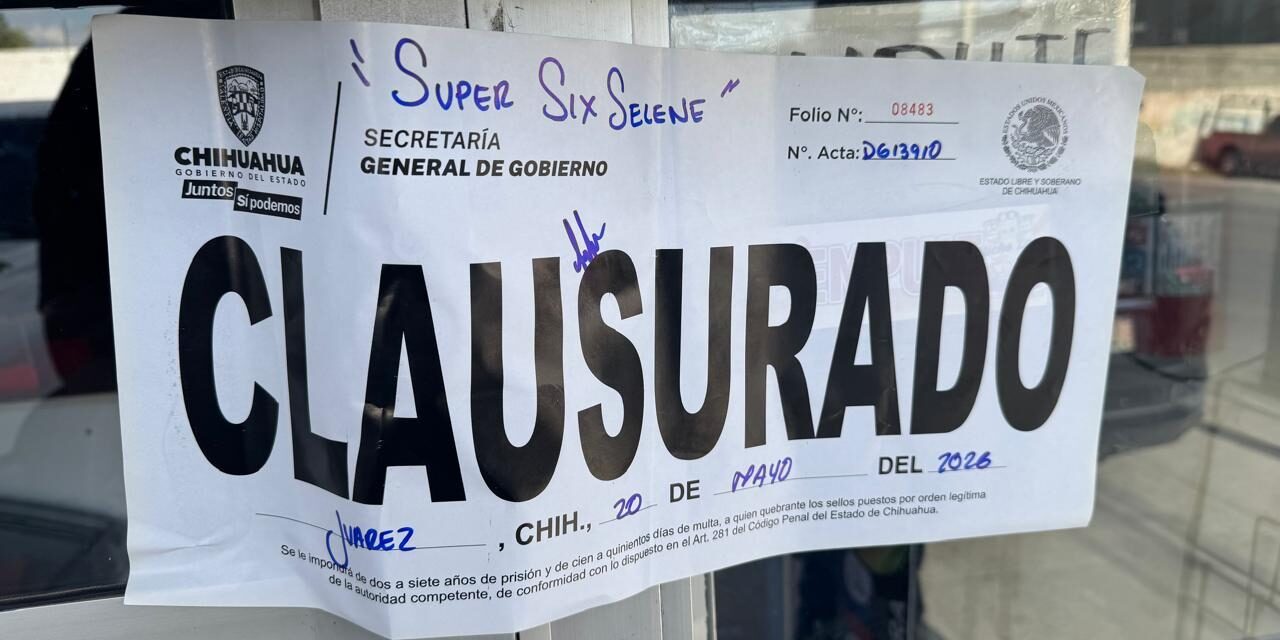 "SUPER SIX SELENE"
CHIHUAHUA
GOBIERNO DEL ESTADO
Juntos
Sí podemos
SECRETARÍA
GENERAL DE GOBIERNO
Folio N°: 08483
N°. Acta: DG13910
ESTADOS UNIDOS MEXICANOS
ESTADO LIBRE Y SOBERANO
DE CHIHUAHUA
CLAUSURADO
JUAREZ, CHIH., 20 DE MAYO DEL 2026
Se le impondrá de dos a siete años de prisión y de cien a quinientos días de multa, a quien quebrante los sellos puestos por orden legítima
de la autoridad competente, de conformidad con lo dispuesto en el Art. 281 del Código Penal del Estado de Chihuahua.